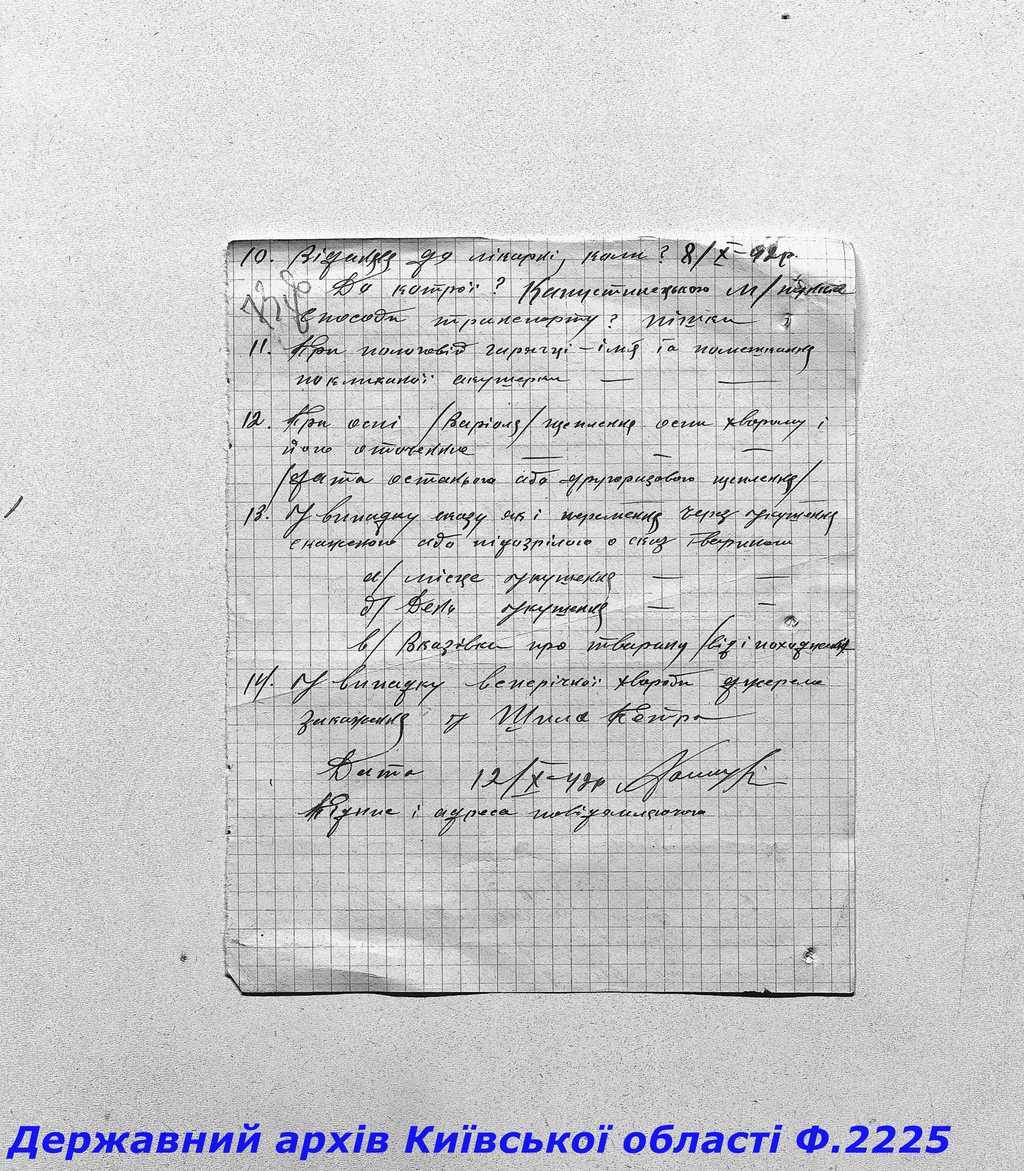 10. Відандя до лікарні, коли? 8/X-42р.
До котрої? Капустинецького м/пункта
Способи транспорту? пішки
11. При пологовій гарячці – імя та помешкання
покликаної акушерки — —
12. При оспі /Варіоля/ щеплення оспи хворому і
його оточення — — —
/дата останього або другоразового щеплення/
13. У випадку сказу як і перемення через укушення
скаженою або підозрілою о сказ твариною
а/ місце укушення — —
б/ День укушення — —
в/ Вказівки про тварину /від і походження/
14. У випадку венеричної хвороби джерело
закаження у Шила Петра
Дата 12/X-42р
і адреса повідомляючого
Державний архів Київської області Ф.2225